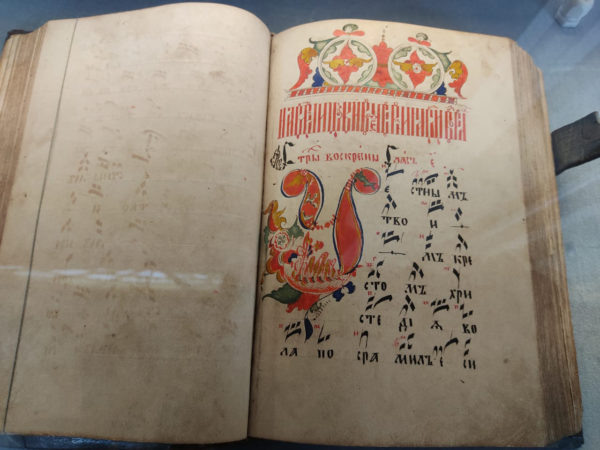 Стры воскрсны гласъ є
Ч естны мъ
тво и
мъ кре
сто мъ хри
сте ді ѧ во
ла по сра милъ е си